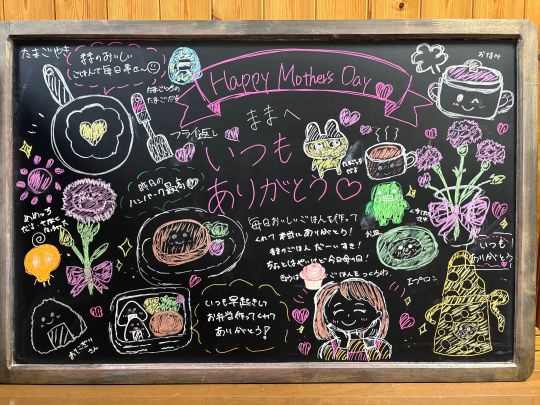 たまごやき
ままのおいしい
ごはんで毎日幸せ
Happy Mother's Day
おなべ
ままへ
フライ返し
いつも
ありがとう
昨日の
ハンバーグ最高
毎日おいしいごはんを作って
くれて本当にありがとう!
ままのごはんだーいすき!
ちょっとはやいけど今日
ごはんをつくるね
いつも
ありがとう
エプロン
いつも早起きして
お弁当作ってくれて
ありがとう!
おにぎり
さん